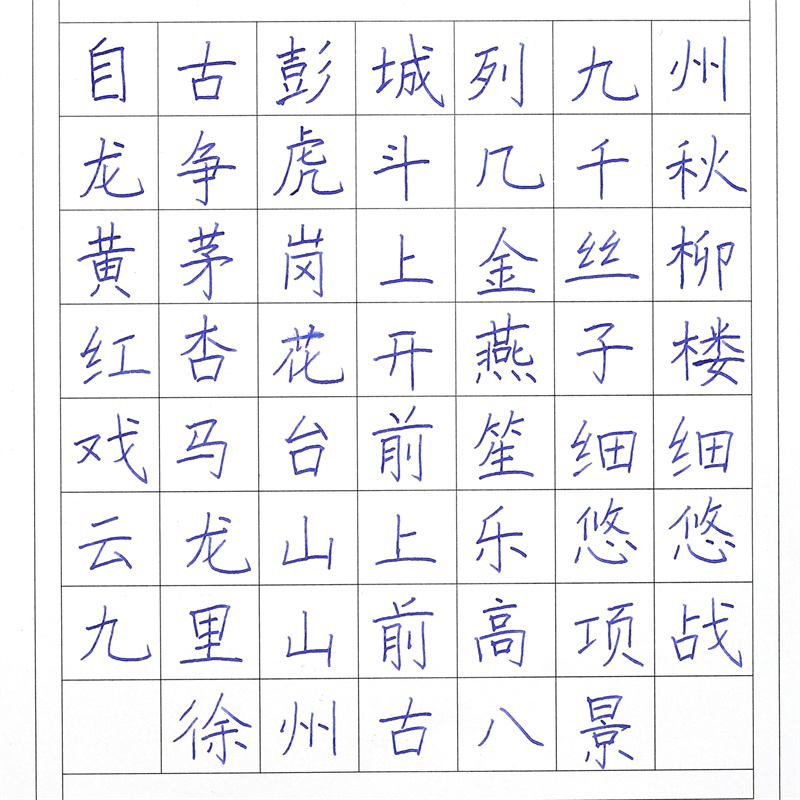 自古彭城列九州
龙争虎斗几千秋
黄茅岗上金丝柳
红杏花开燕子楼
戏马台前笙细细
云龙山上乐悠悠
九里山前高项战
徐州古八景